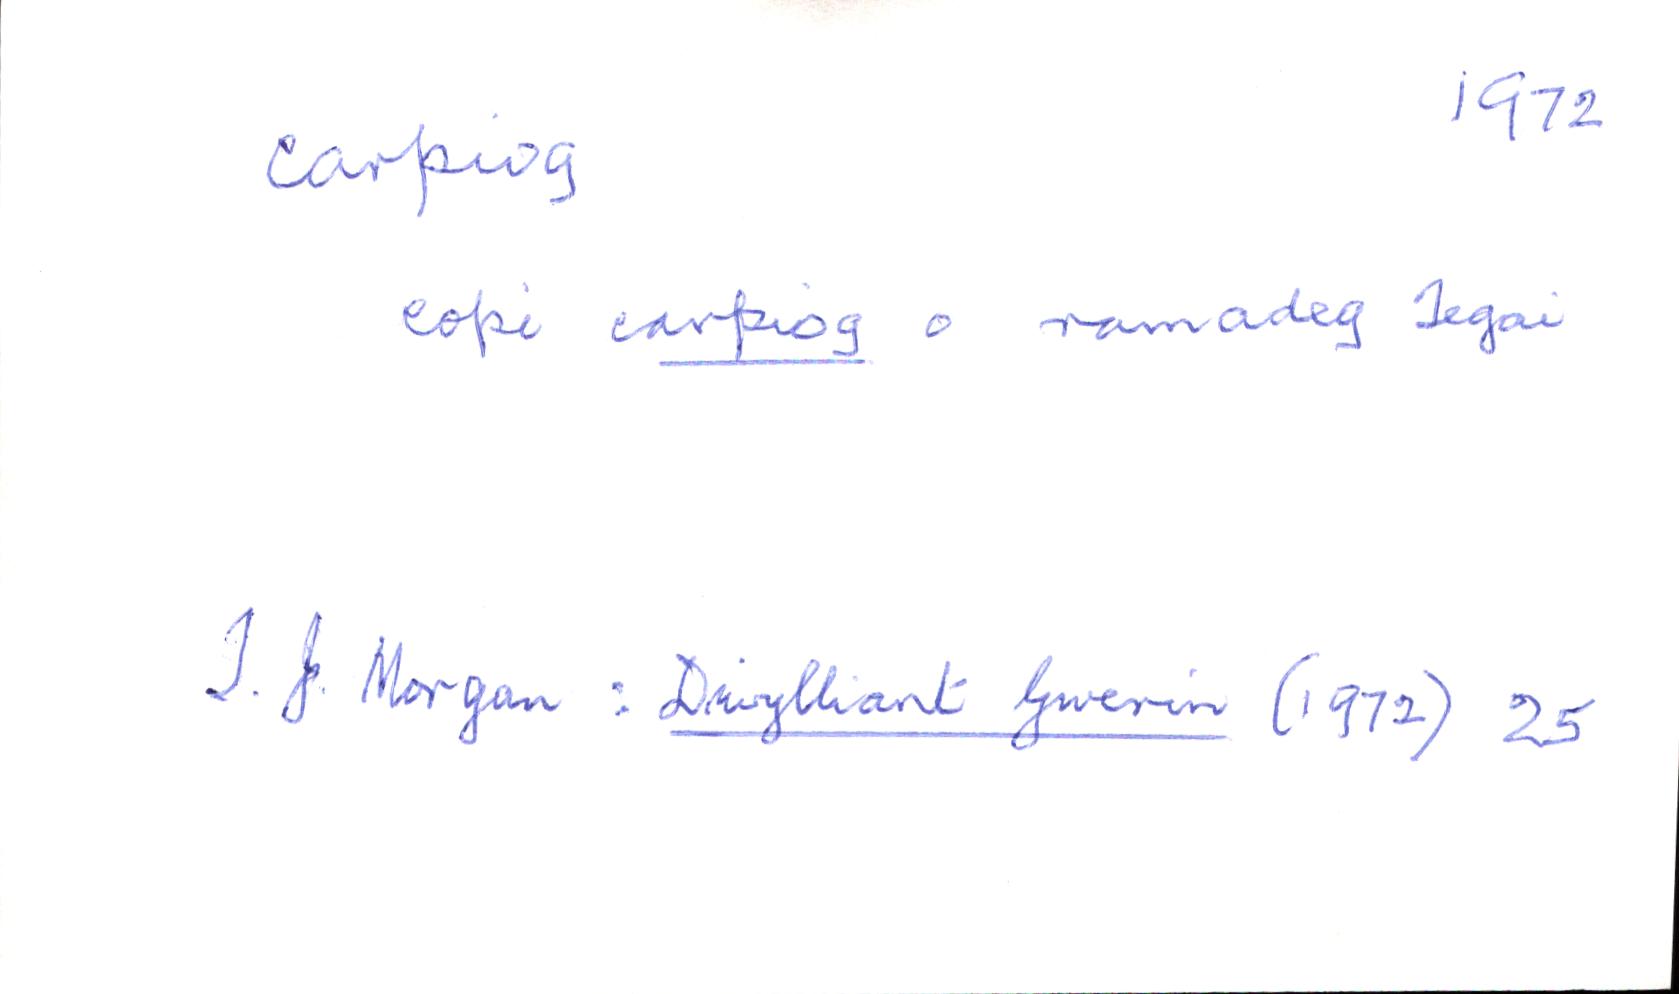 1972
carpiog
copi carpiog o ramadeg Tegai
T. J. Morgan : Diwylliant Gwerin (1972) 25